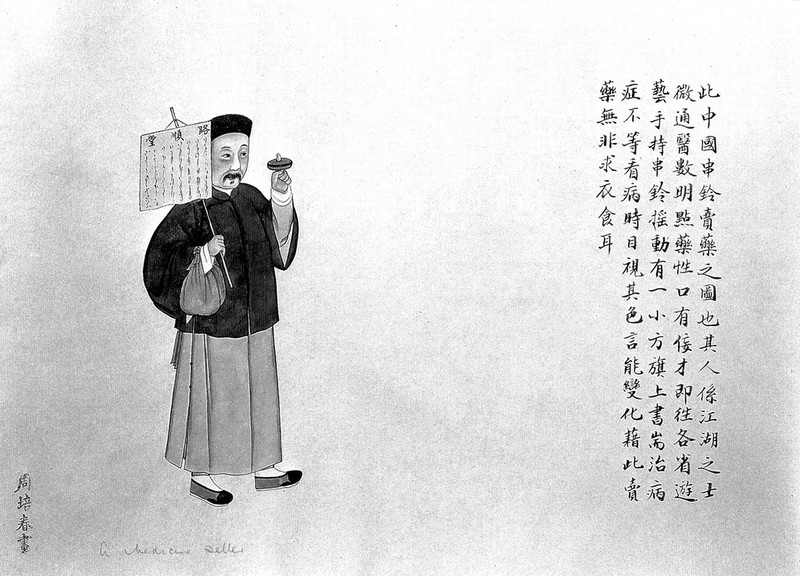 此中國串鈴賣藥之圖也其人係江湖之士
微通醫數明點藥性口有倿才即往各省遊
藝手持串鈴摇動有一小方旗上書耑治病
症不等看病時目視其色言能變化藉此賣
藥無非求衣食耳
路順堂
周培春畫
A medicine seller